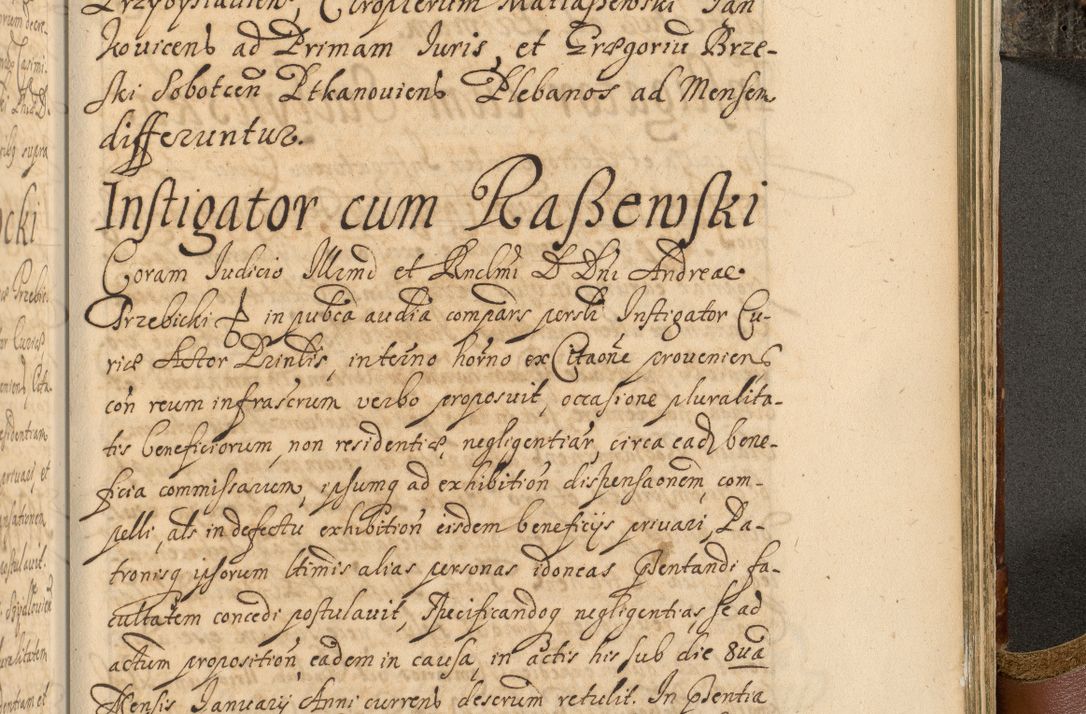 Przybyslavien, Ctropierum Matiaßewski Jan
Kovicens ad Primam Juris, et Grægoriu Brze-
ski Sobotcen Ptkanoviens Plebanos ad Mensem
differuntur.
Instigator cum Raßewski
Coram Judicio Illmi et Rndmi D Dni Andreæ
Trzebicki in pubca audia compars persli Instigator Cu-
riæ Actor Prinlis, interno horno ex Citaone proveniens
con reum infrascrum verbo proposuit, occasione pluralita-
tis beneficiorum, non residentiæ, negligentiar, circa ead bene-
ficia commissarum, ipsumq ad exhibition dispensaonem com-
pelli, als in defectu exhibition eisdem beneficijs privari, Pa-
tronisq ipsorum ltimis alias personas idoneas pntandi fa-
cultatem concedi postulavit, specificandoq negligentias, se ad
actum proposition eadem in causa, in actis his sub die 8va
Mensis Januarij Anni currens descrum retulit. In pntia